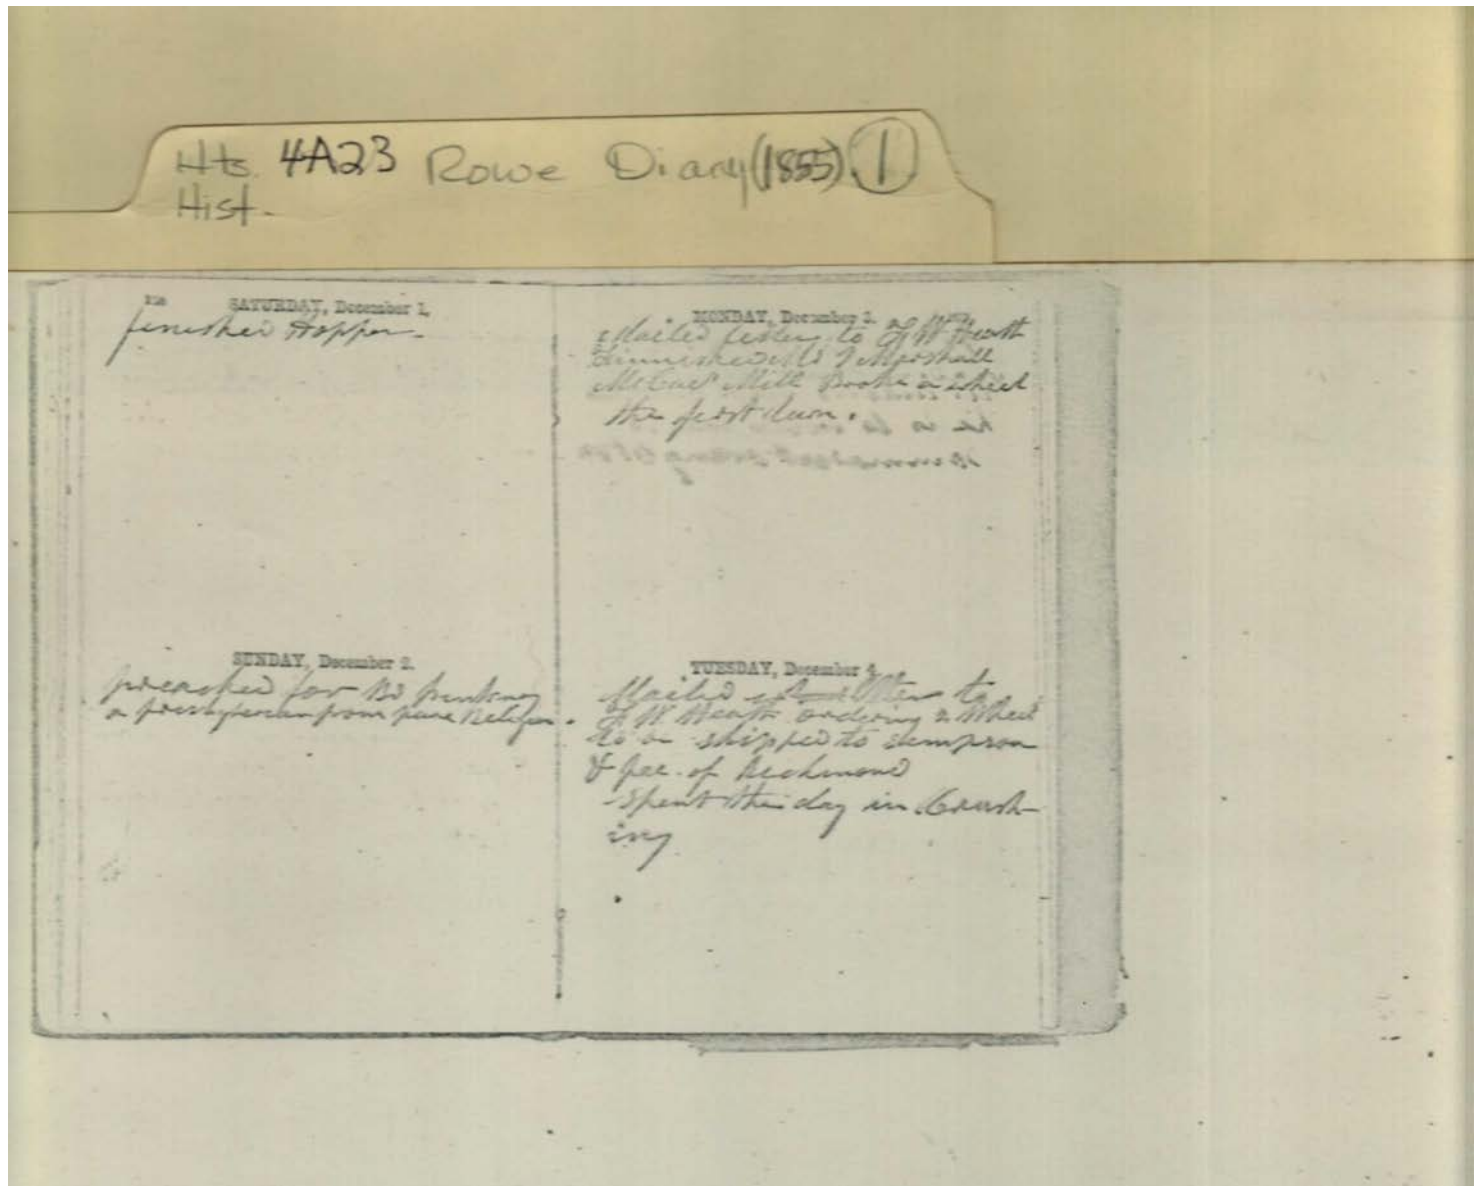 Hts. 4A23 Rowe Diary (1855) 1
Hist.
SATURDAY, December 1.
finished Hopper.
SUNDAY, December 2.
preached for
a presbyterian from pure Religion.
MONDAY, December 3.
Mailed letter to J W Heath
Marshall
Mill a wheel
the first dum.
TUESDAY, December 4.
Mailed to
J. W. Heath ordering a Wheel
to be shipped to
& of Richmond
Spent this day in Crush-
ing